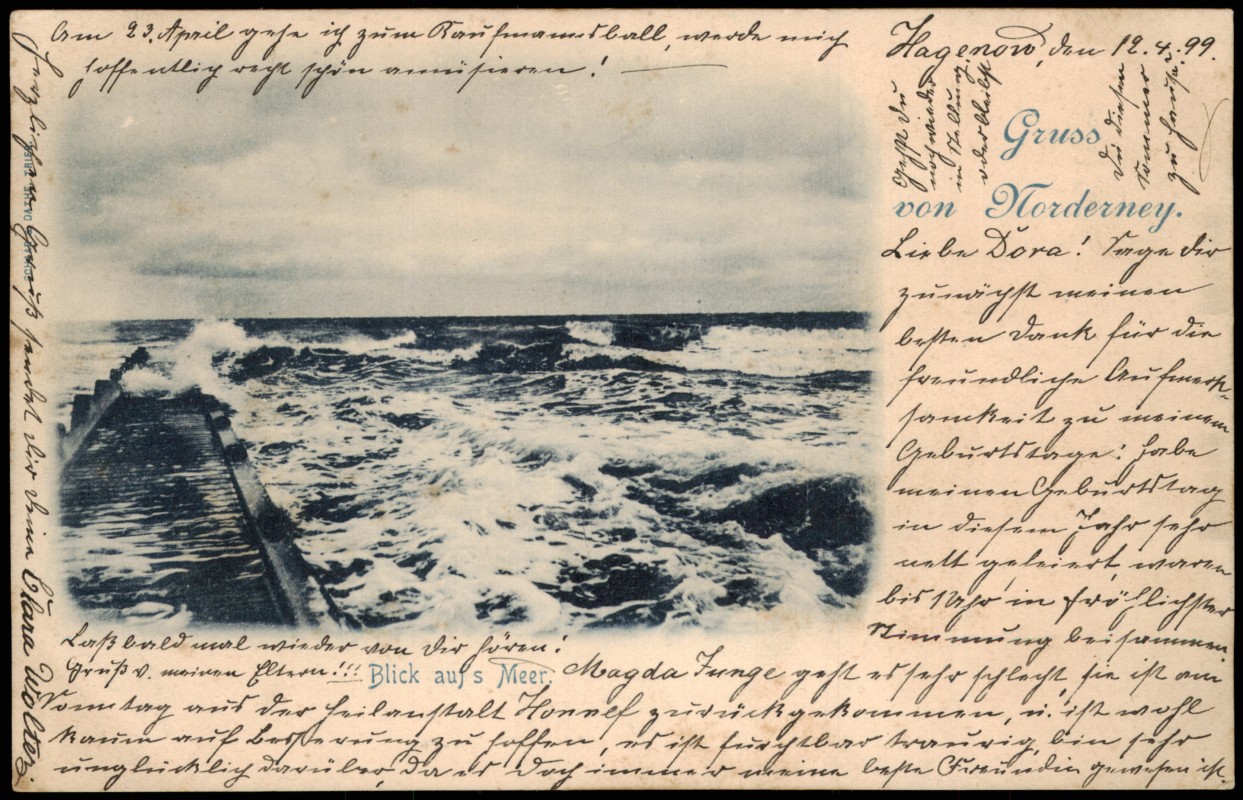 Hagenow, den 12.4.99.
Gruss
von Norderney.
Liebe Dora! Sage dir
zunächst meinen
besten Dank für die
freundliche Aufmerk-
samkeit zu meinem
Geburtstage! habe
meinen Geburtstag
in diesem Jahr sehr
nett gefeiert, waren
bis 1 Uhr in fröhlichster
Stimmung beisammen.
Magda Junge geht es sehr schlecht, sie ist am
Sonntag aus der Heilanstalt Honnef zurückgekommen, u. ist wohl
kaum auf Besserung zu hoffen, es ist furchtbar traurig, bin sehr
unglücklich darüber, da es doch immer meine beste Freundin gewesen ist.
Am 23. April gehe ich zum Kaufmannsball, werde mich
hoffentlich recht schön amüsieren!
Gehst du
noch wieder
in Stellung,
oder bleibst
du diesen
Sommer
zu Hause?
Laß bald mal wieder von dir hören!
Gruß v. meinen Eltern!!!
Blick auf's Meer.
Herzlichen Gruß sendet dir deine Clara Wolter.